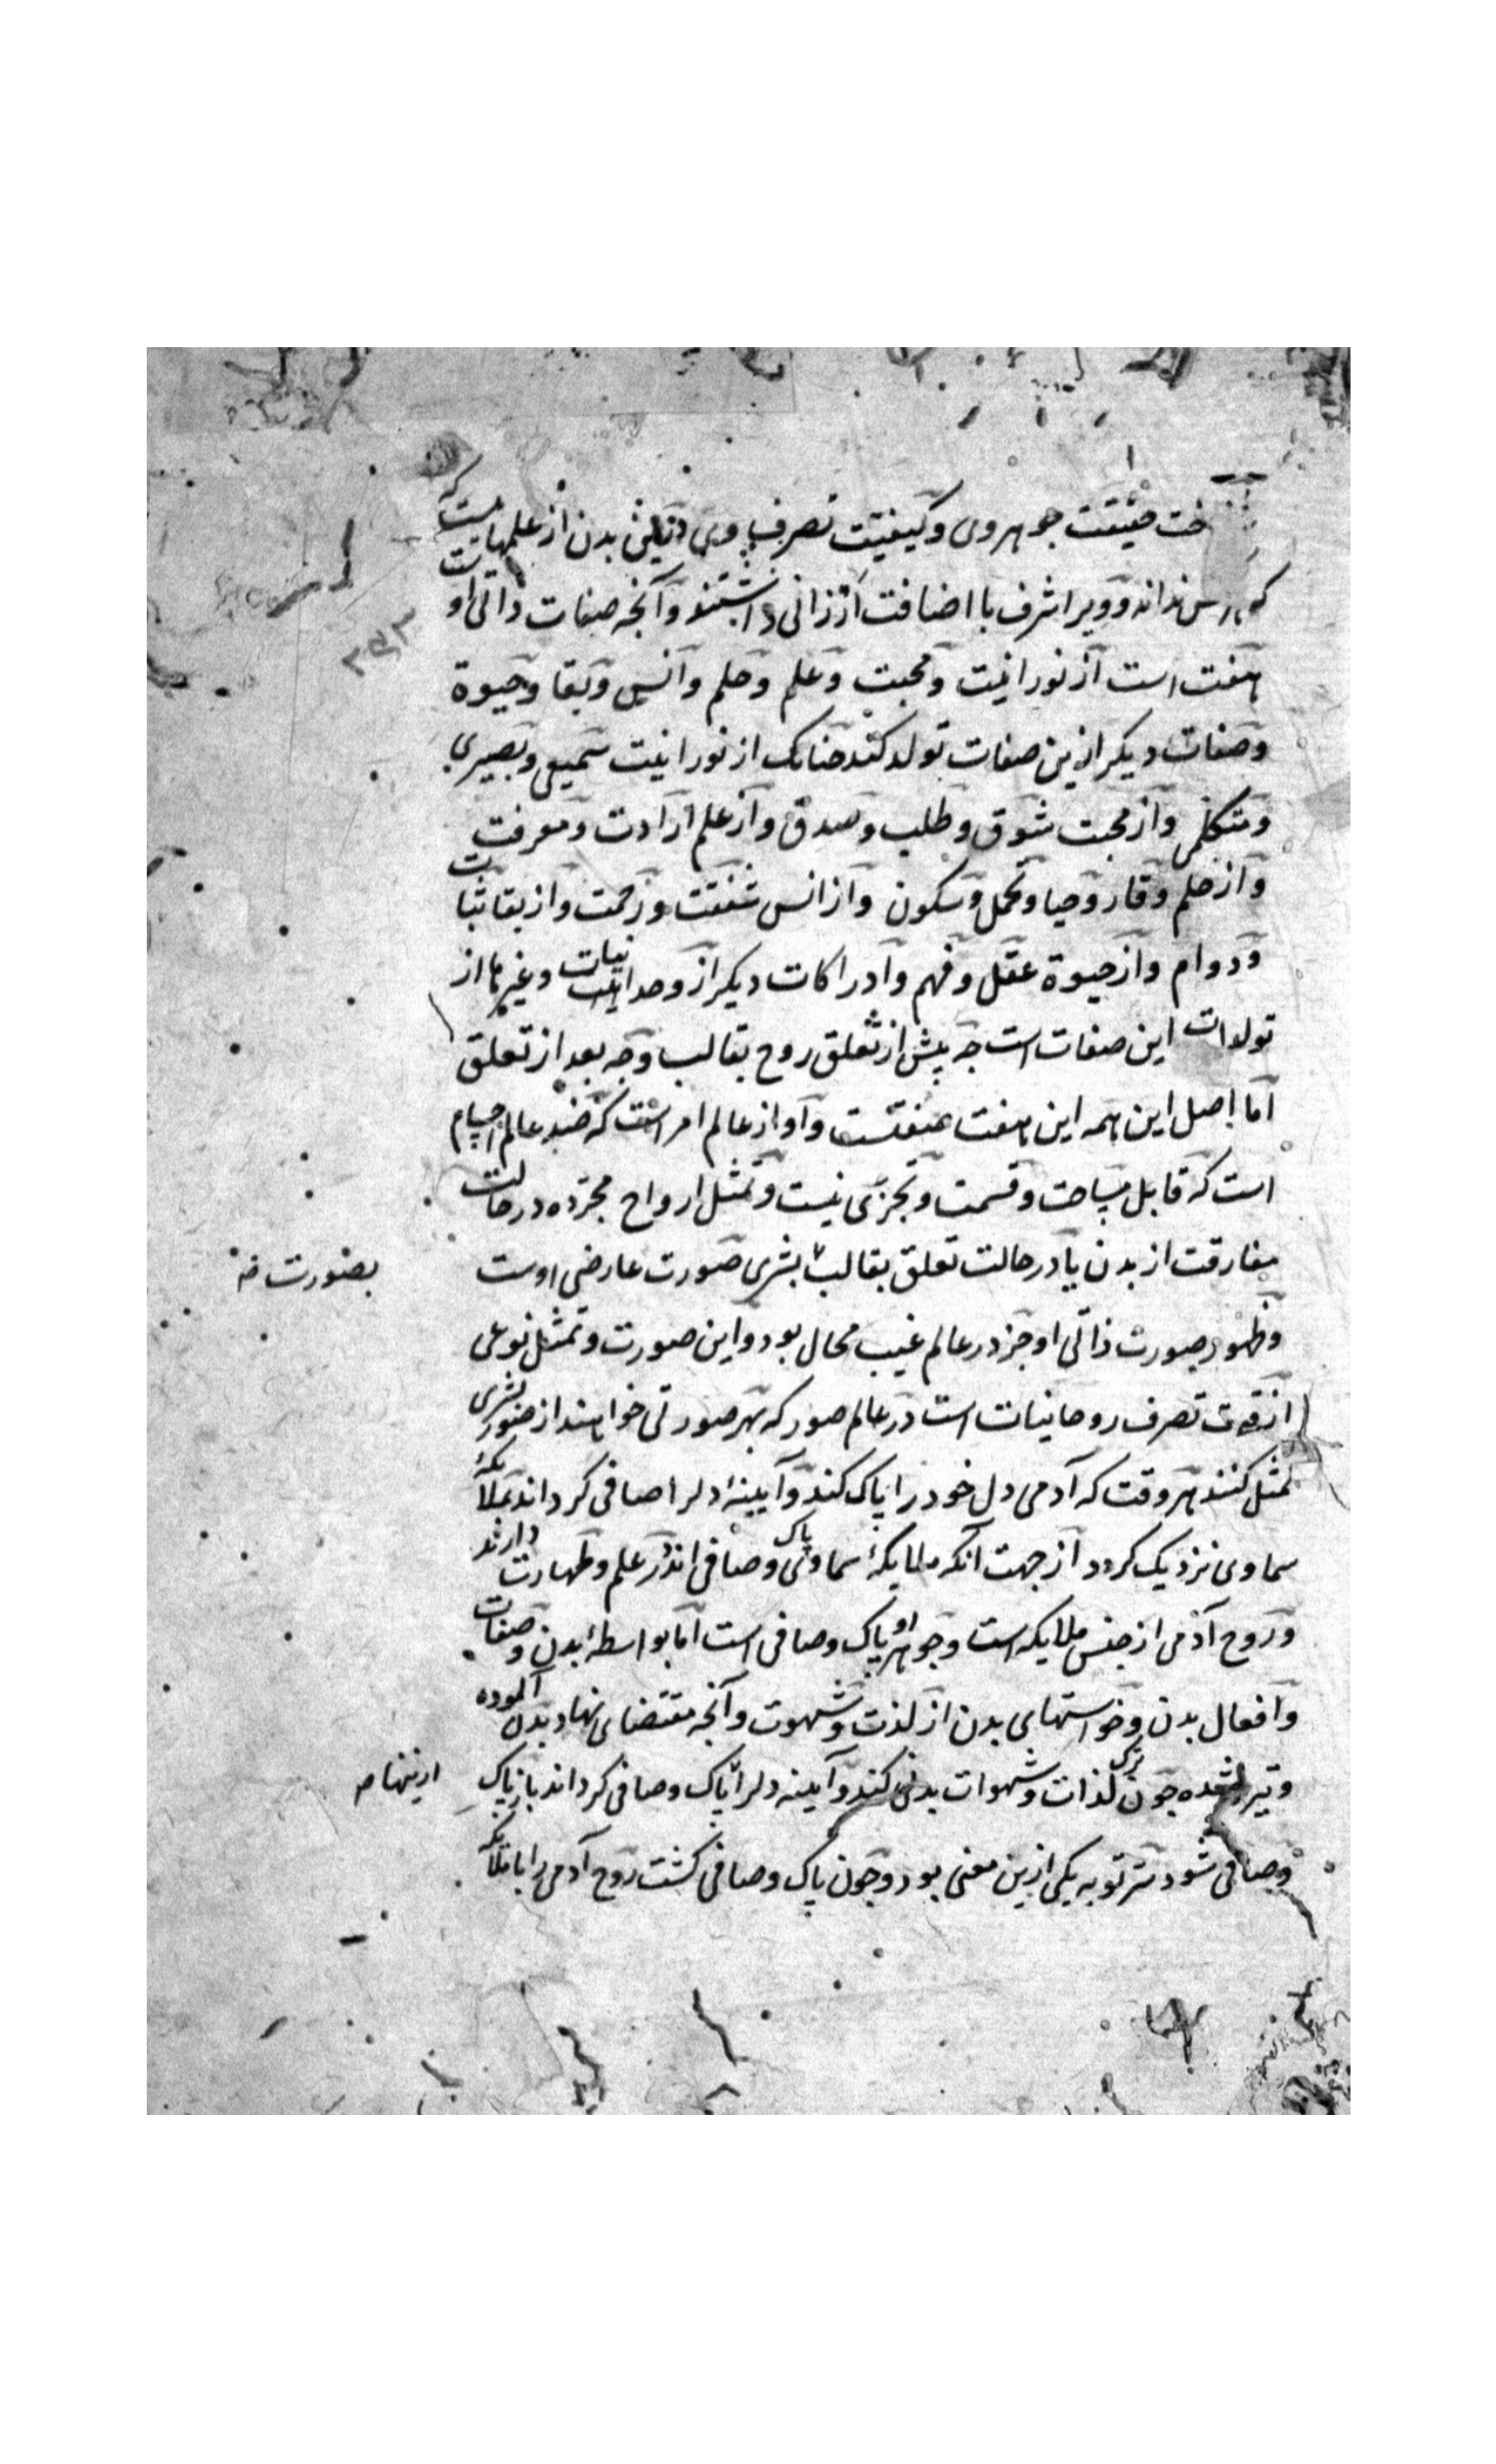 خت حقیقت جوهر وی و کیفیت تصرف وی در بدن از علمهاست که
کس نداند و ویرا شرف با اضافت ارزانی داشتند و آنچه صفات ذاتی او
هفت است از نورانیت و محبت و علم و حلم و انس و بقا و حیوة
و صفات دیکر ازین صفات تولد کند چنانک از نورانیت سمیعی و بصیری
و متکلمی و از محبت شوق و طلب و صدق و از علم ارادت و معرفت
و از حلم وقار و حیا و تحمل و سکون و از انس شفقت و رحمت و از بقا ثبات
و دوام و از حیوة عقل و فهم و ادراکات دیکر از وحدانیات و غیرها از
تولدات این صفات است چه پیش از تعلق روح بقالب و چه بعد از تعلق
اما اصل این همه این هفت صفتست و او از عالم امر است که ضد عالم اجسام
است که قابل مساحت و قسمت و تجزی نیست و تمثل ارواح مجرده در حالت
مفارقت از بدن یا در حالت تعلق بقالب بشری صورت عارضی اوست
بصورت
و ظهور صورت ذاتی او جز در عالم غیب محال بود و این صورت و تمثل نوعی
از قوت تصرف روحانیات است در عالم صور که بهر صورتی خواهند از صور بشری
تمثل کنند هر وقت که آدمی دل خود را پاک کند و آیینۀ دلرا صافی کرداند بملایکۀ
سماوی نزدیک کردد از جهت آنکه ملایکۀ سماوی پاک و صافی اند و علم و طهارت دارند
و روح آدمی از جنس ملایکه است و جوهر او پاک و صافی است اما بواسطۀ بدن و صفات
و افعال بدن و خواستهای بدن از لذت و شهوت و آنچه مقتضای نهاد بدن آلوده
و تیره شده چون ترک لذات و شهوات بدنی کند و آیینه دلرا پاک و صافی کرداند باز پاک
ازینها
و صافی شود سر توبه یکی ازین معنی بود و چون پاک و صافی کشت روح آدمی را با ملایکه